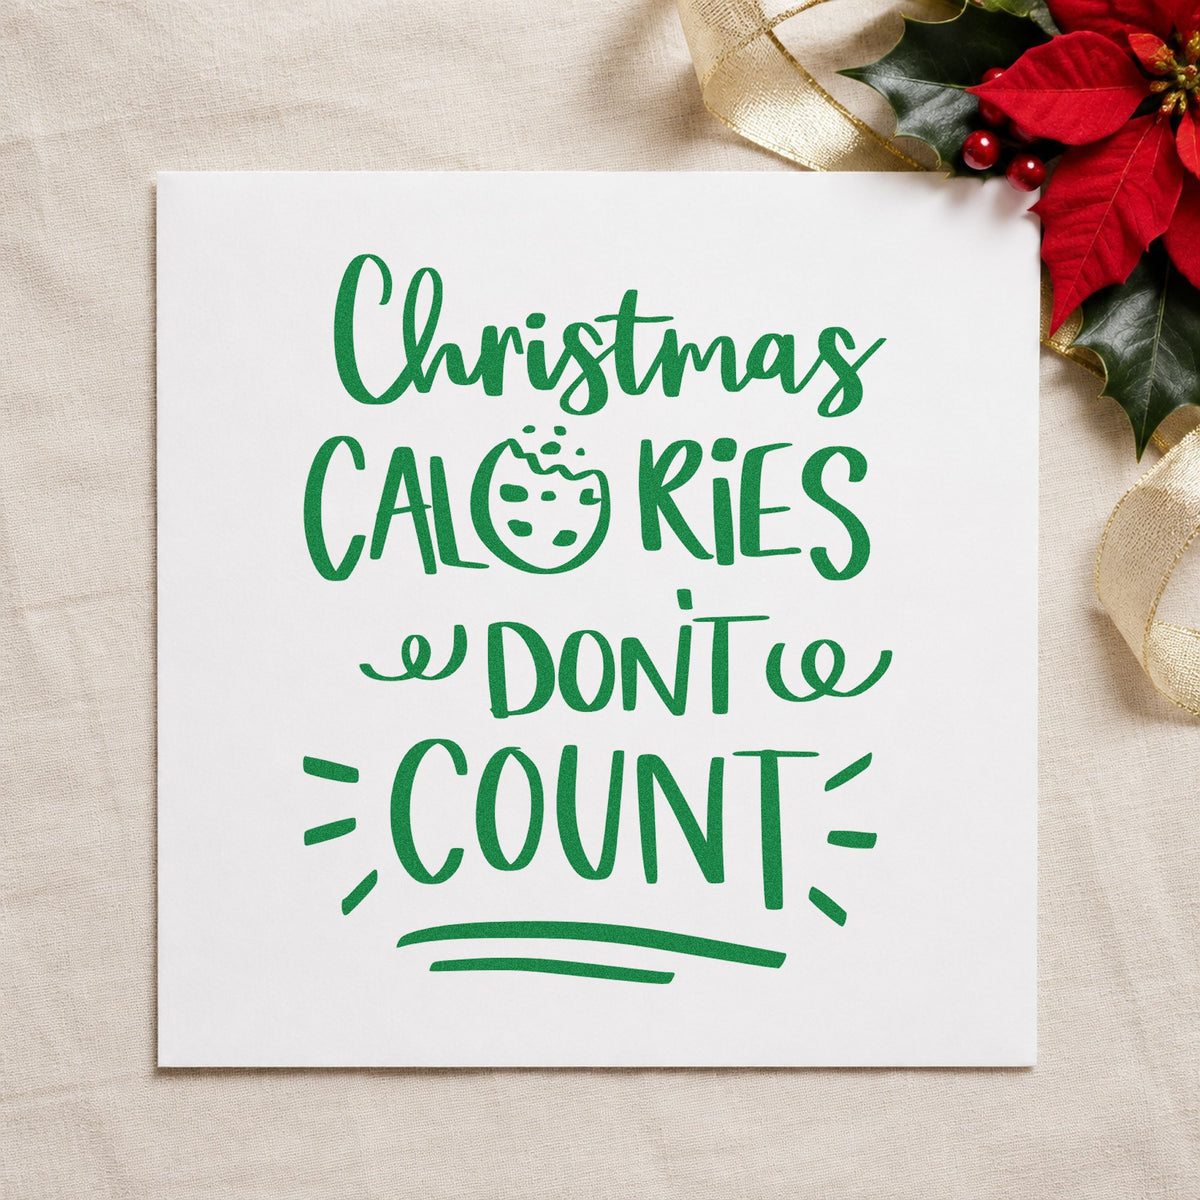 Christmas
CALORIES
DON'T
COUNT